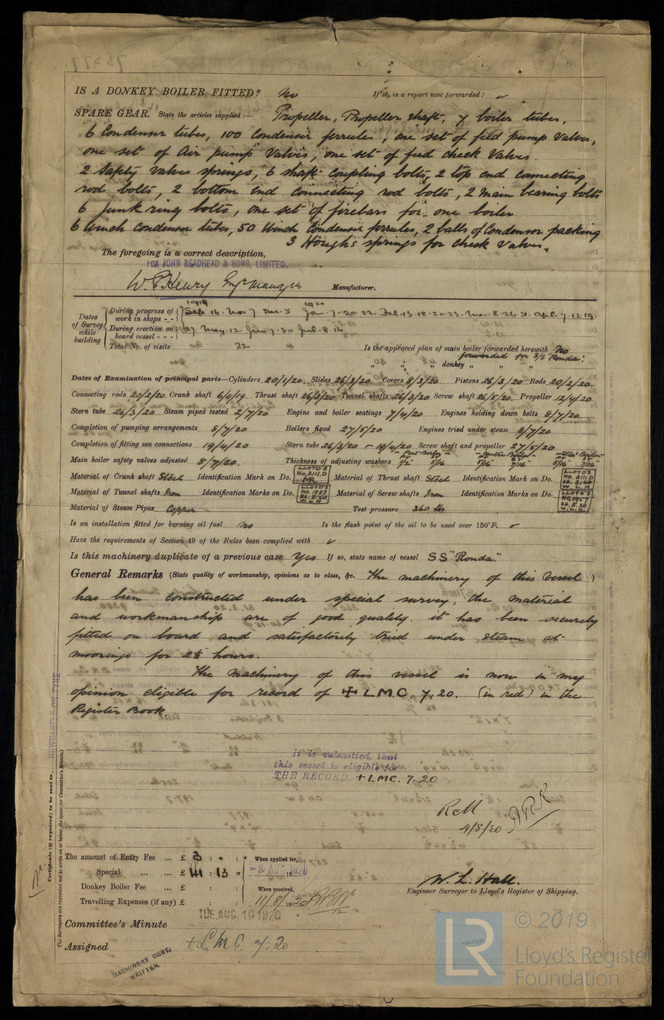 IS A DONKEY BOILER FITTED? No If so, is a report now forwarded? ✓
SPARE GEAR. State the articles supplied:— Propeller, Propeller shaft, 7 boiler tubes,
6 Condenser tubes, 100 Condenser ferrules, one set of feed pump valves,
one set of Air pump valves, one set of feed check valves.
2 safety valve springs, 6 shaft coupling bolts, 2 top end connecting
rod bolts, 2 bottom end connecting rod bolts, 2 main bearing bolts
6 junk ring bolts, one set of firebars for one boiler
6 Winch Condenser tubes, 50 Winch Condenser ferrules, 2 balls of Condenser packing
3 Hough's springs for check valves.
The foregoing is a correct description,
FOR JOHN READHEAD & SONS, LIMITED.
W Henry Eng. Manager Manufacturer.
Dates of Survey while building
During progress of work in shops - - 1919 Sep. 16. Nov. 7 Dec. 5 1920 Jan. 7. 20. 22 Feb. 13. 18. 20. 23. Mar. 8. 26. 31. Apl. 7. 12. 19
During erection on board vessel - - - 27 May. 12. Jun. 7. 30 Jul. 8. 16
Total No. of visits 22
Is the approved plan of main boiler forwarded herewith No
forwarded for S/S "Ronda"
" " " donkey " "
Dates of Examination of principal parts—Cylinders 20/1/20. Slides 26/3/20 Covers 8/3/20 Pistons 26/3/20 Rods 20/2/20.
Connecting rods 20/2/20 Crank shaft Thrust shaft 26/3/20 Tunnel shafts 26/3/20 Screw shaft 26/3/20 Propeller 12/4/20
Stern tube 26/3/20 Steam pipes tested 2/7/20 Engine and boiler seatings 7/4/20 Engines holding down bolts 8/7/20
Completion of pumping arrangements 8/7/20 Boilers fixed 27/5/20 Engines tried under steam 8/7/20
Completion of fitting sea connections 19/4/20 Stern tube 26/3/20 - 19/4/20 Screw shaft and propeller 27/5/20
Main boiler safety valves adjusted 8/7/20. Thickness of adjusting washers
Material of Crank shaft Steel Identification Mark on Do. LLOYD'S No. 3111.D Material of Thrust shaft Steel Identification Mark on Do. LLOYD'S No. 3111.D
Material of Tunnel shafts Iron Identification Marks on Do. LLOYD'S Material of Screw shafts Iron Identification Marks on Do. LLOYD'S
Material of Steam Pipes Copper Test pressure 360 lbs
Is an installation fitted for burning oil fuel no Is the flash point of the oil to be used over 150°F. ✓
Have the requirements of Section 49 of the Rules been complied with ✓
Is this machinery duplicate of a previous case Yes If so, state name of vessel SS "Ronda"
General Remarks (State quality of workmanship, opinions as to class, &c. The machinery of this vessel )
has been constructed under special survey, the material
and workmanship are of good quality. it has been securely
fitted on board and satisfactorily tried under steam at
moorings for 2½ hours.
The machinery of this vessel is now in my
opinion eligible for record of + L.M.C. 7.20. (in red) in the
Register Book
It is submitted that
this vessel is eligible for
THE RECORD. + LMC. 7.20
4/8/20
The amount of Entry Fee ... £ 3 : - :
Special ... £ 41 : 13 -
Donkey Boiler Fee ... £ : :
Travelling Expenses (if any) £ : :
When applied for,
When received,
11/8/20
W. L. Hall.
Engineer Surveyor to Lloyd's Register of Shipping.
TUE. AUG. 10 1920
Committee's Minute
Assigned + L.M.C. 7.20
MACHINERY CERT. WRITTEN.
Certificate (if required) to be sent to
NEWCASTLE-ON-TYNE
(The Surveyors are requested not to write on or below the space for Committee's Minute.)
© 2019
LR
Lloyd's Register
Foundation